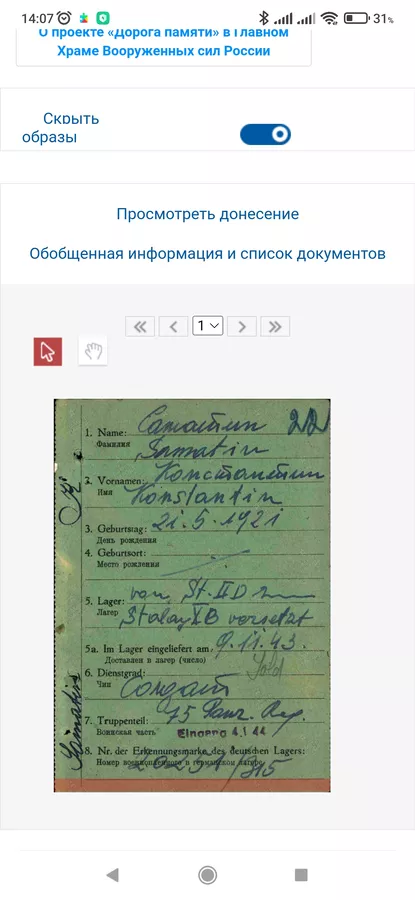 14:07
31%
О проекте «Дорога памяти» в Главном
Храме Вооруженных сил России
Скрыть
образы
Просмотреть донесение
Обобщенная информация и список документов
1
1. Name: Саматин
Фамилия Samatin
2. Vornamen: Константин
Имя Konstantin
3. Geburtstag: 21.5.1921
День рождения
4. Geburtsort:
Место рождения
5. Lager: von St. II D
Лагер Stalag X B versetzt
5a. Im Lager eingeliefert am: 9.11.43.
Доставлен в лагер (число)
6. Dienstgrad: Sold
Чин Солдат
7. Truppenteil: 75
Воинская часть
4.1.44
8. Nr. der Erkennungsmarke des deutschen Lagers:
Номер военнопленного в германском лагере